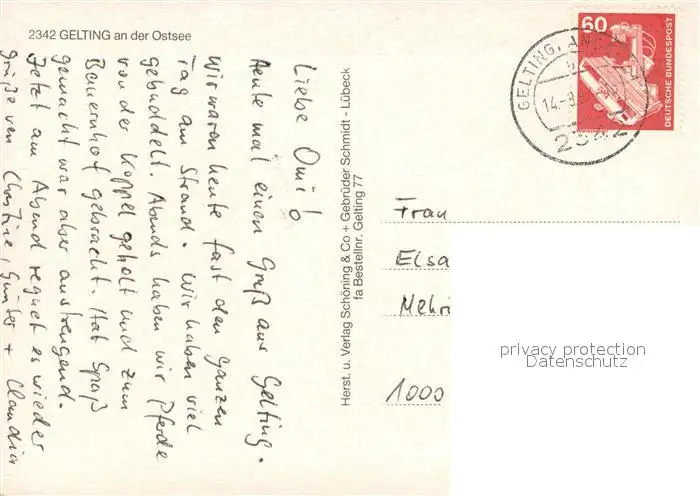 2342 GELTING an der Ostsee
Liebe Omi!
Heute mal einen Gruß aus Gelting.
Wir waren heute fast den ganzen
Tag am Strand. Wir haben viel
gebuddelt. Abends haben wir Pferde
von der Koppel geholt und zum
Bauernhof gebracht. Hat Spaß
gemacht war aber anstrengend.
Jetzt am Abend regnet es wieder
Grüße von Christine, Günter + Claudia
Herst. u. Verlag Schöning & Co + Gebrüder Schmidt - Lübeck
fa Bestellnr. Gelting 77
60
DEUTSCHE BUNDESPOST
GELTING,
2342
Frau
Elsa
Mehri
1000
privacy protection
Datenschutz